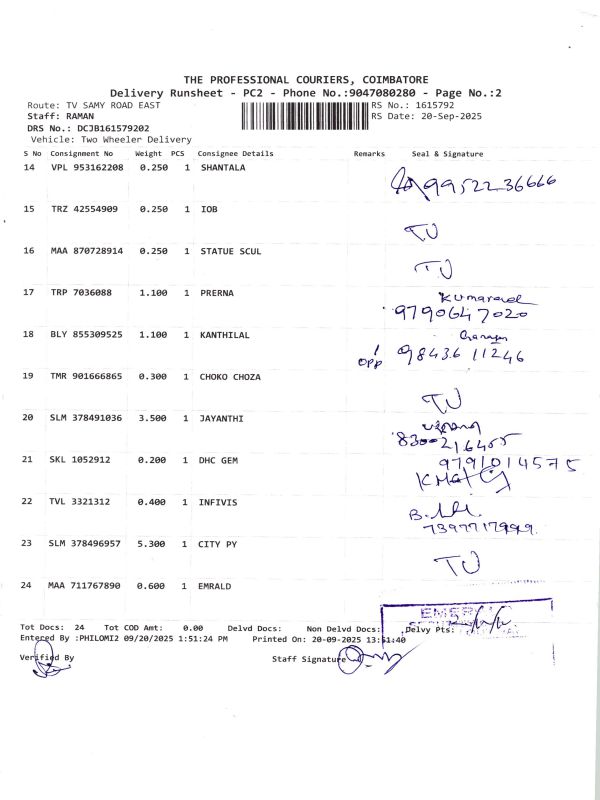 THE PROFESSIONAL COURIERS, COIMBATORE
Delivery Runsheet - PC2 - Phone No.:9047080280 - Page No.:2
Route: TV SAMY ROAD EAST RS No.: 1615792
Staff: RAMAN RS Date: 20-Sep-2025
DRS No.: DCJB161579202
Vehicle: Two Wheeler Delivery
S No Consignment No Weight PCS Consignee Details Remarks Seal & Signature
14 VPL 953162208 0.250 1 SHANTALA
9952236666
15 TRZ 42554909 0.250 1 IOB
TU
16 MAA 870728914 0.250 1 STATUE SCUL
TU
17 TRP 7036088 1.100 1 PRERNA
Kumaravel
9790647020
18 BLY 855309525 1.100 1 KANTHILAL
opp 98436 11246
19 TMR 901666865 0.300 1 CHOKO CHOZA
TU
20 SLM 378491036 3.500 1 JAYANTHI
8300216455
21 SKL 1052912 0.200 1 DHC GEM
9791014575
22 TVL 3321312 0.400 1 INFIVIS
7397717999
23 SLM 378496957 5.300 1 CITY PY
TU
24 MAA 711767890 0.600 1 EMRALD
Tot Docs: 24 Tot COD Amt: 0.00 Delvd Docs: Non Delvd Docs: Delvy Pts:
Entered By :PHILOMI2 09/20/2025 1:51:24 PM Printed On: 20-09-2025 13:51:40
Verified By Staff Signature